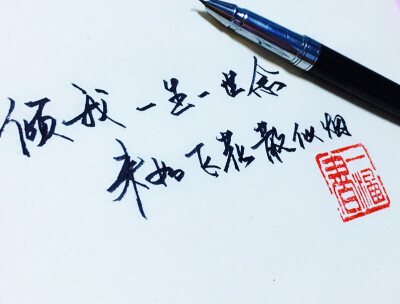 倾我一生一世念
来如飞花散似烟